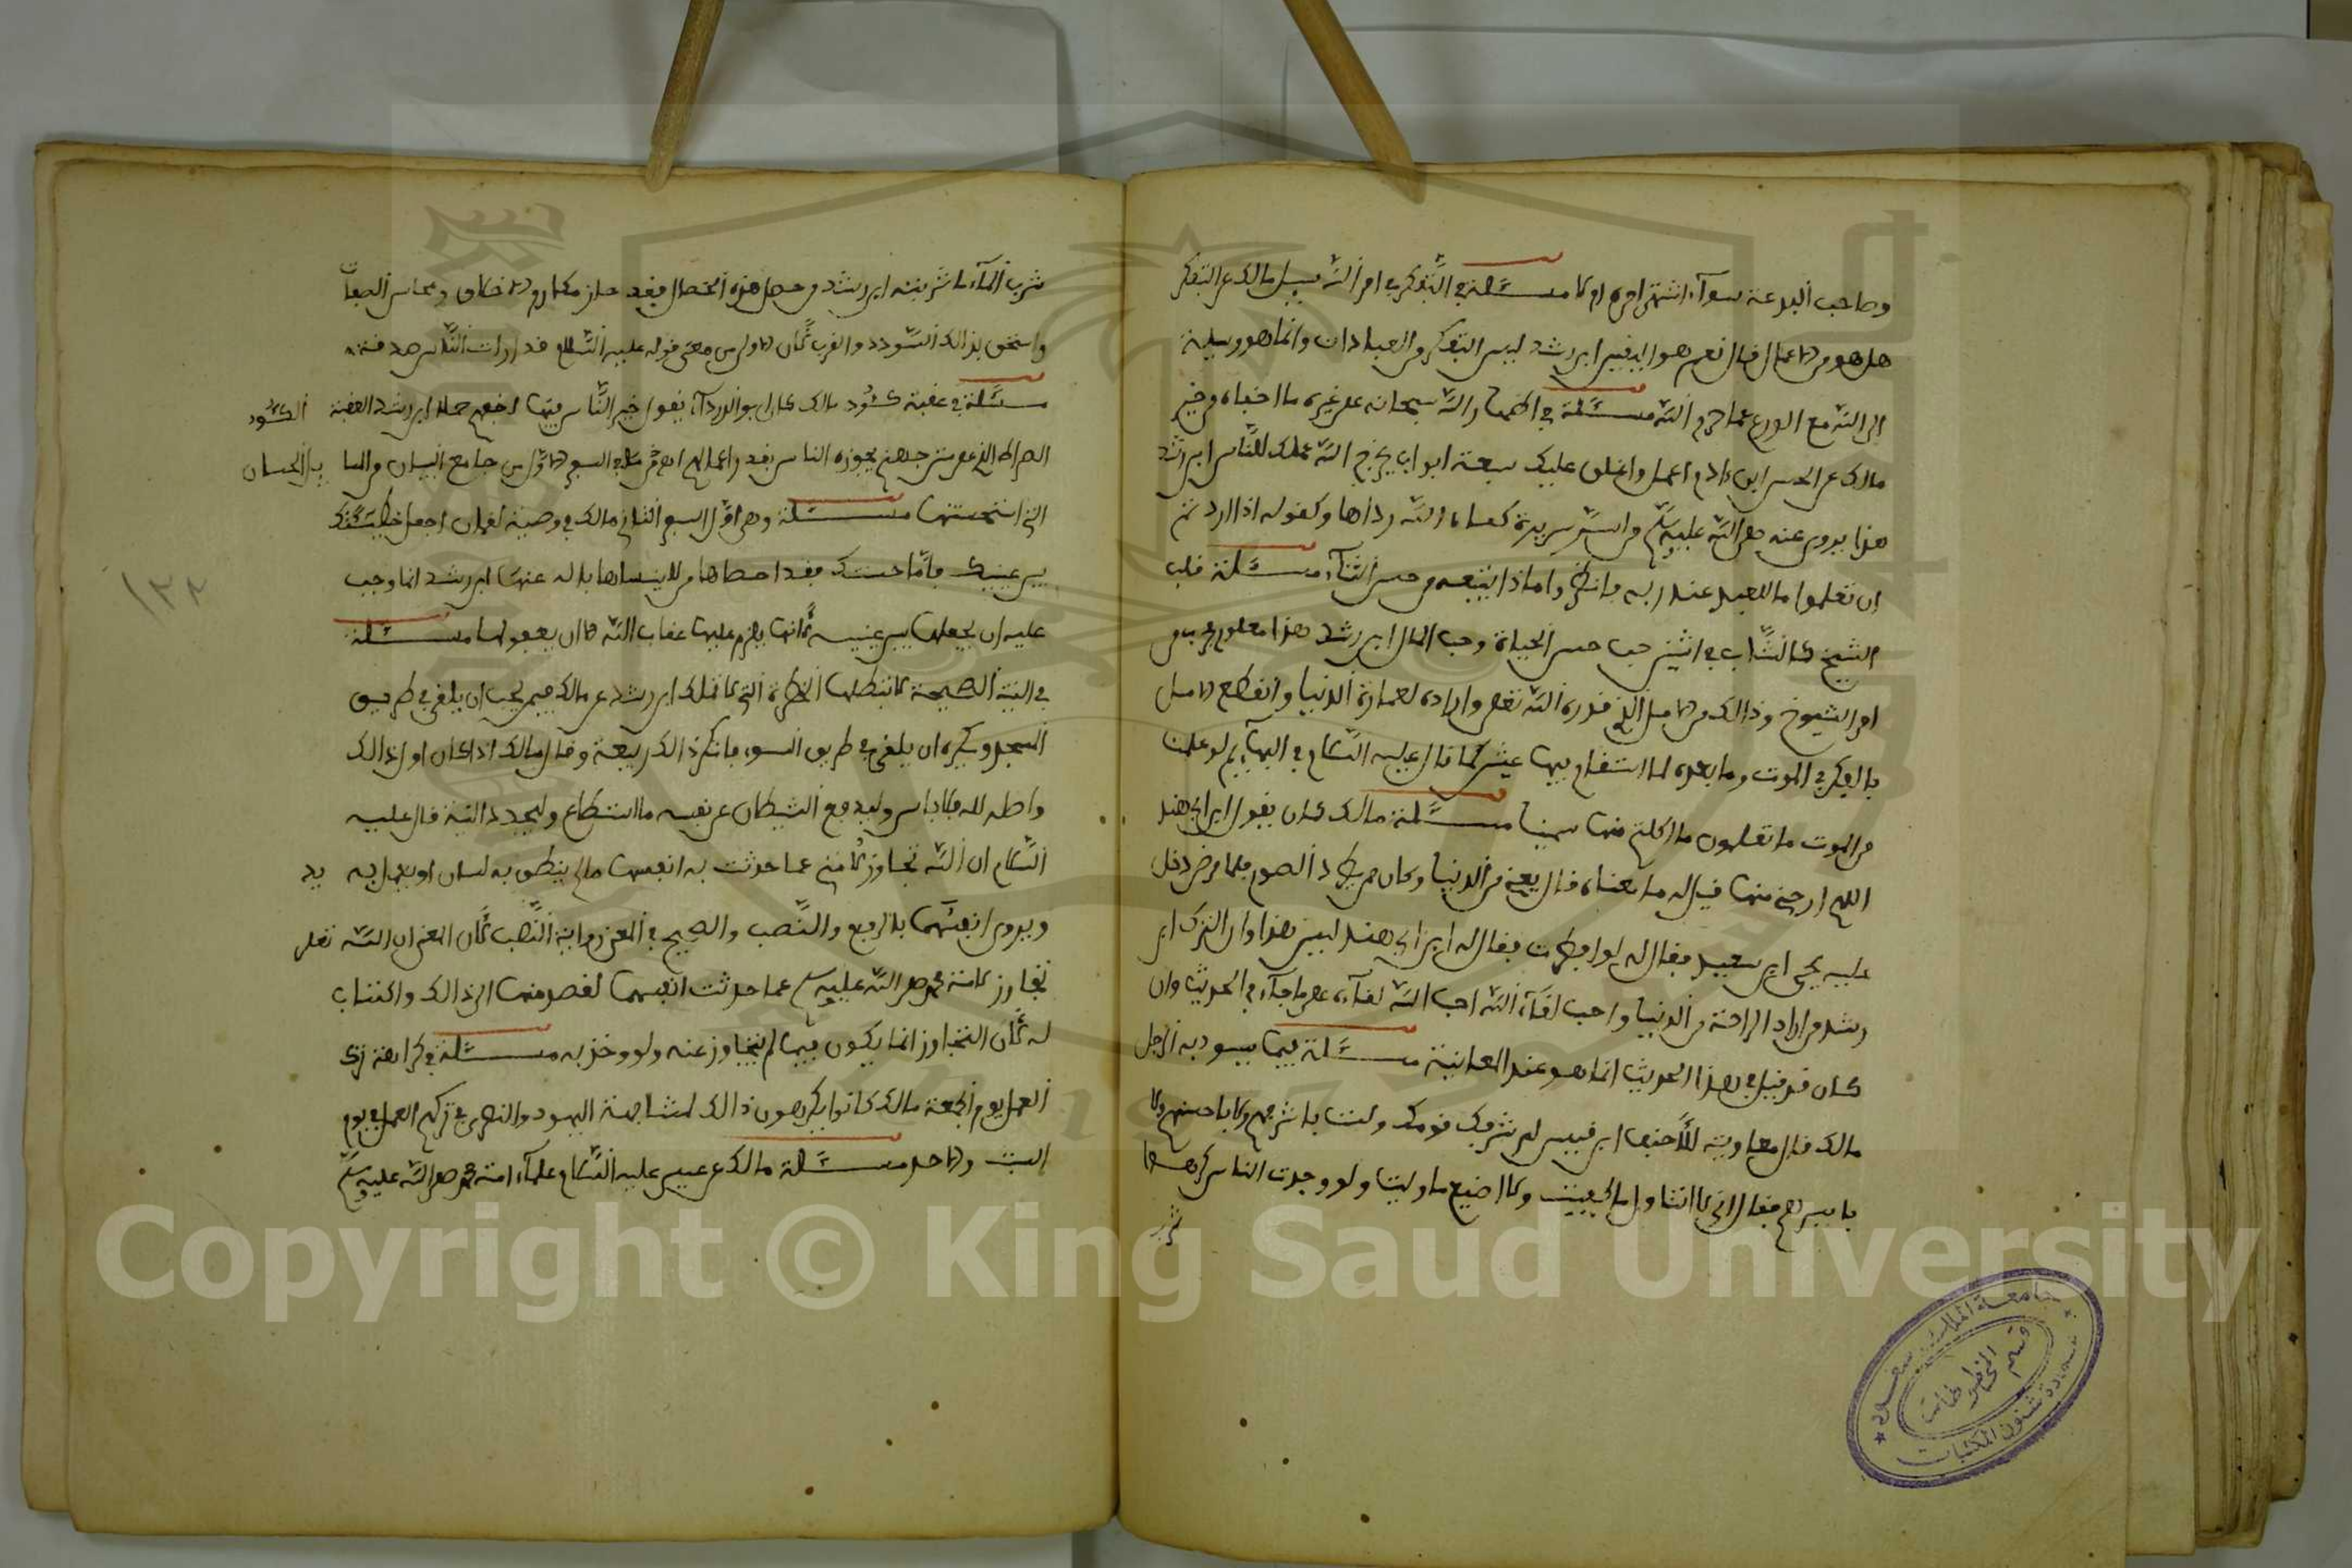 وصاحب البدعة سوآء اشتهر امره ام لا مسئلة في التفكر في امر الله سيل مالك عن التفكر
هل هو من الاعمال فقال نعم هو اليقين ابن رشد ليس التفكر من العبادات وانما هو وسيلة
الى الله مع الورع عما حرم الله مسئلة في اظهار الله سبحانه على غيره ما اخفاه من خير
مالك عن الحسن ابن ءادم اعمل واغلق عليك سبعة ابواب يخرج الله عملك للناس ابن رشد
هذا يروى عنه صلى الله عليه وسلم من اسر سريرة كساه الله رداها وكقوله اذا اردتم
ان تعلموا ما للعبد عند ربه فانظروا ماذا يتبعه من حسن الثنآء مسئلة قلب
الشيخ كالشاب في اثنين حب حسن الحياة وحب المال ابن رشد هذا معلوم
امر الشيوخ وذالك من الامل الذي قدره الله تعلى وارادة لعمارة الدنيا ولو انقطع الامل
بالفكر في الموت وما بعده لما استقام فيها عيش كما قال عليه السلام في البهايم لو علمت
من الموت ما تعلمون ما اكلتم منها سمينا مسئلة مالك كان يقول ابن ابي هند
اللهم ارحني منها قيل له ما معناه قال يعني من الدنيا وكان ممن يطرد الصوم فلما مرض دخل
عليه يحيى ابن سعيد فقال له لو افطرت فقال له ابن ابي هند ليس هذا اوان الترك ابن
رشد من اراد الراحة من الدنيا واحب لقآء الله احب الله لقآءه على ما جآء في الحديث وان
كان قد قيل في هذا الحديث انما هو عند المعاينة مسئلة فيما يسود به الرجل
مالك قال معاوية للاحنف ابن قيس لم شرفك قومك ولست باشرفهم ولا باحسنهم ولا
بايسرهم فقال اني لا اتناول ما كفيت ولا اضيع ما وليت ولو وجدت الناس كرهوا
شرب
شرب المآء ما شربته ابن رشد من حصل هذه الخصال فقد حاز مكارم الاخلاق ومحاسن الصفات
واستحق بذالك السودد والقرب لان الاولى من معنى قوله عليه السلام مدارات الناس صدقة
مسئلة في عقبة كئود مالك كان ابو الدردآء يقول خير الناس فيها اخفهم حملا ابن رشد العقبة الكئود
الصراط الذي على متن جهنم يجوزه الناس بقدر اعمالهم السفر الاول من جامع البيان
التي استحسنتها مسئلة وهي اول السفر الثاني مالك في وصية لقمان اجعل خطيئتك
بين عينيك فاما حسنتك فقد احصاها من لا ينساها بلا له عنها ابن رشد انما وجب
عليه ان يجعلها بين عينيه لانها يلزم عليها عقاب الله الا ان يعفو لها مسئلة
في النية الصحيحة لا تبطلها الخطرة التي لا تملك ابن رشد عن مالك فيمن يحب ان يلقى في طريق
المسجد ويكره ان يلقى في طريق السوء فانكر ذالك ربيعة وقال مالك اذا كان اول ذالك
واصله لله فلا باس وليدفع الشيطان عن نفسه ما استطاع وليجدد النية قال عليه
السلام ان الله تجاوز لامتي عما حدثت به انفسها مالم ينطق به لسان او يعمل به يد
ويروى انفسها بالرفع والنصب والصحيح في المعنى رواية النصب لان المعنى ان الله تعلى
تجاوز لامة محمد صلى الله عليه وسلم عما حدثت انفسها لقصد منها الى ذالك واكتساب
له لان التجاوز انما يكون فيما لم يتجاوز عنه ولو وخذ به مسئلة في كراهة ترك
العمل يوم الجمعة مالك كانوا يكرهون ذالك لمشابهة اليهود والنصرى في تركهم العمل في يوم
السبت والاحد مسئلة مالك عن عيسى عليه السلام علمآء امة محمد صلى الله عليه وسلم
١٣٢
Copyright © King Saud University
جامعة الملك سعود
قسم المخطوطات
عمادة شئون المكتبات